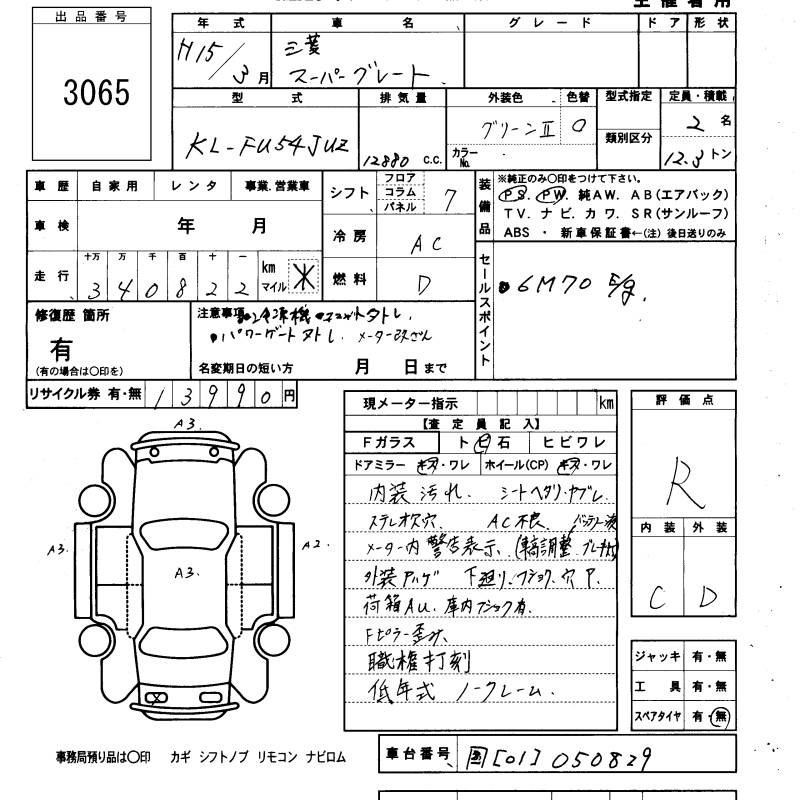 出品番号
3065
年式 車名 グレード ドア 形状
H15/3月 三菱 スーパーグレート
型式 排気量 外装色 色替 型式指定 定員・積載
KL-FU54JUZ 12880 C.C. グリーンⅡ 0 2名
カラーNo. 類別区分 12.3トン
車歴 自家用 レンタ 事業.営業車
車検 年 月
走行 十万 万 千 百 十 一 km マイル
3 4 0 8 2 2
シフト フロア コラム パネル 7
冷房 AC
燃料 D
装備品
※純正のみ〇印をつけて下さい。
PS. PW. 純AW. AB(エアバック)
TV. ナビ. カワ. SR(サンルーフ)
ABS ・ 新車保証書←(注) 後日送りのみ
セールスポイント
6M70 E/g.
修復歴 箇所
有
(有の場合は〇印を)
注意事項 冷凍機
パワーゲート メーター改ざん
名変期日の短い方 月 日まで
リサイクル券 有・無 13990円
現メーター指示 km
【査定員記入】
Fガラス トビ石 ヒビワレ
ドアミラー キズ・ワレ ホイール(CP) キズ・ワレ
内装汚れ. シートヘタリ.ヤブレ.
ステレオ欠穴 AC不良.
メーター内警告表示.
外装 下廻り. 穴P.
荷箱AU. 庫内
Fピラー歪み.
職権打刻
低年式 ノークレーム.
評価点
R
内装 外装
C D
ジャッキ 有・無
工具 有・無
スペアタイヤ 有・無
A3.
A3.
A3.
A2.
事務局預り品は〇印 カギ シフトノブ リモコン ナビロム
車台番号 国[01]050829